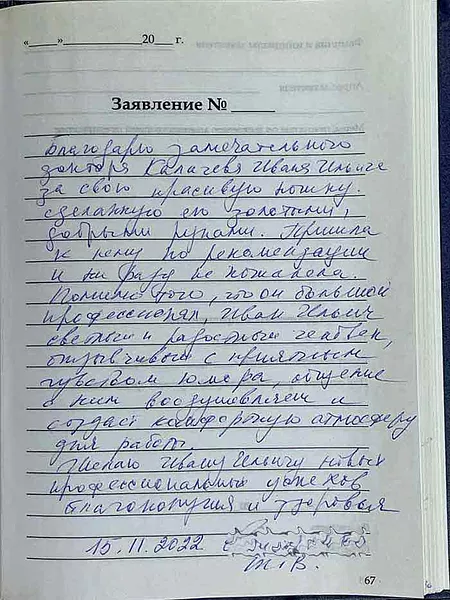 «____»____________20___г.
Заявление № _____
Благодарю замечательного
доктора Калачева Ивана Ильича
за свою красивую ножку,
сделанную его золотыми,
добрыми руками. Пришла
к нему по рекомендации
и ни разу не пожалела.
Помимо того, что он большой
профессионал, Иван Ильич
светлый и радостный человек,
отзывчивый с приятным
чувством юмора, общение
с ним воодушевляет и
создаёт комфортную атмосферу
для работы.
Желаю Ивану Ильичу новых
профессиональных успехов
благополучия и здоровья
15.11.2022
67